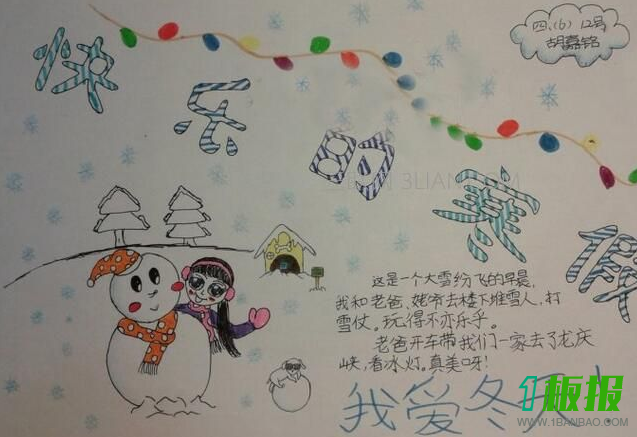 四、(6) 12号
胡嘉铭
快乐的寒假
3LIAN.COM
这是一个大雪纷飞的早晨,
我和老爸、姥爷去楼下堆雪人,打
雪仗。玩得不亦乐乎。
老爸开车带我们一家去了龙庆
峡,看冰灯。真美呀!
我爱冬天!
1板报
WWW.1BANBAO.COM